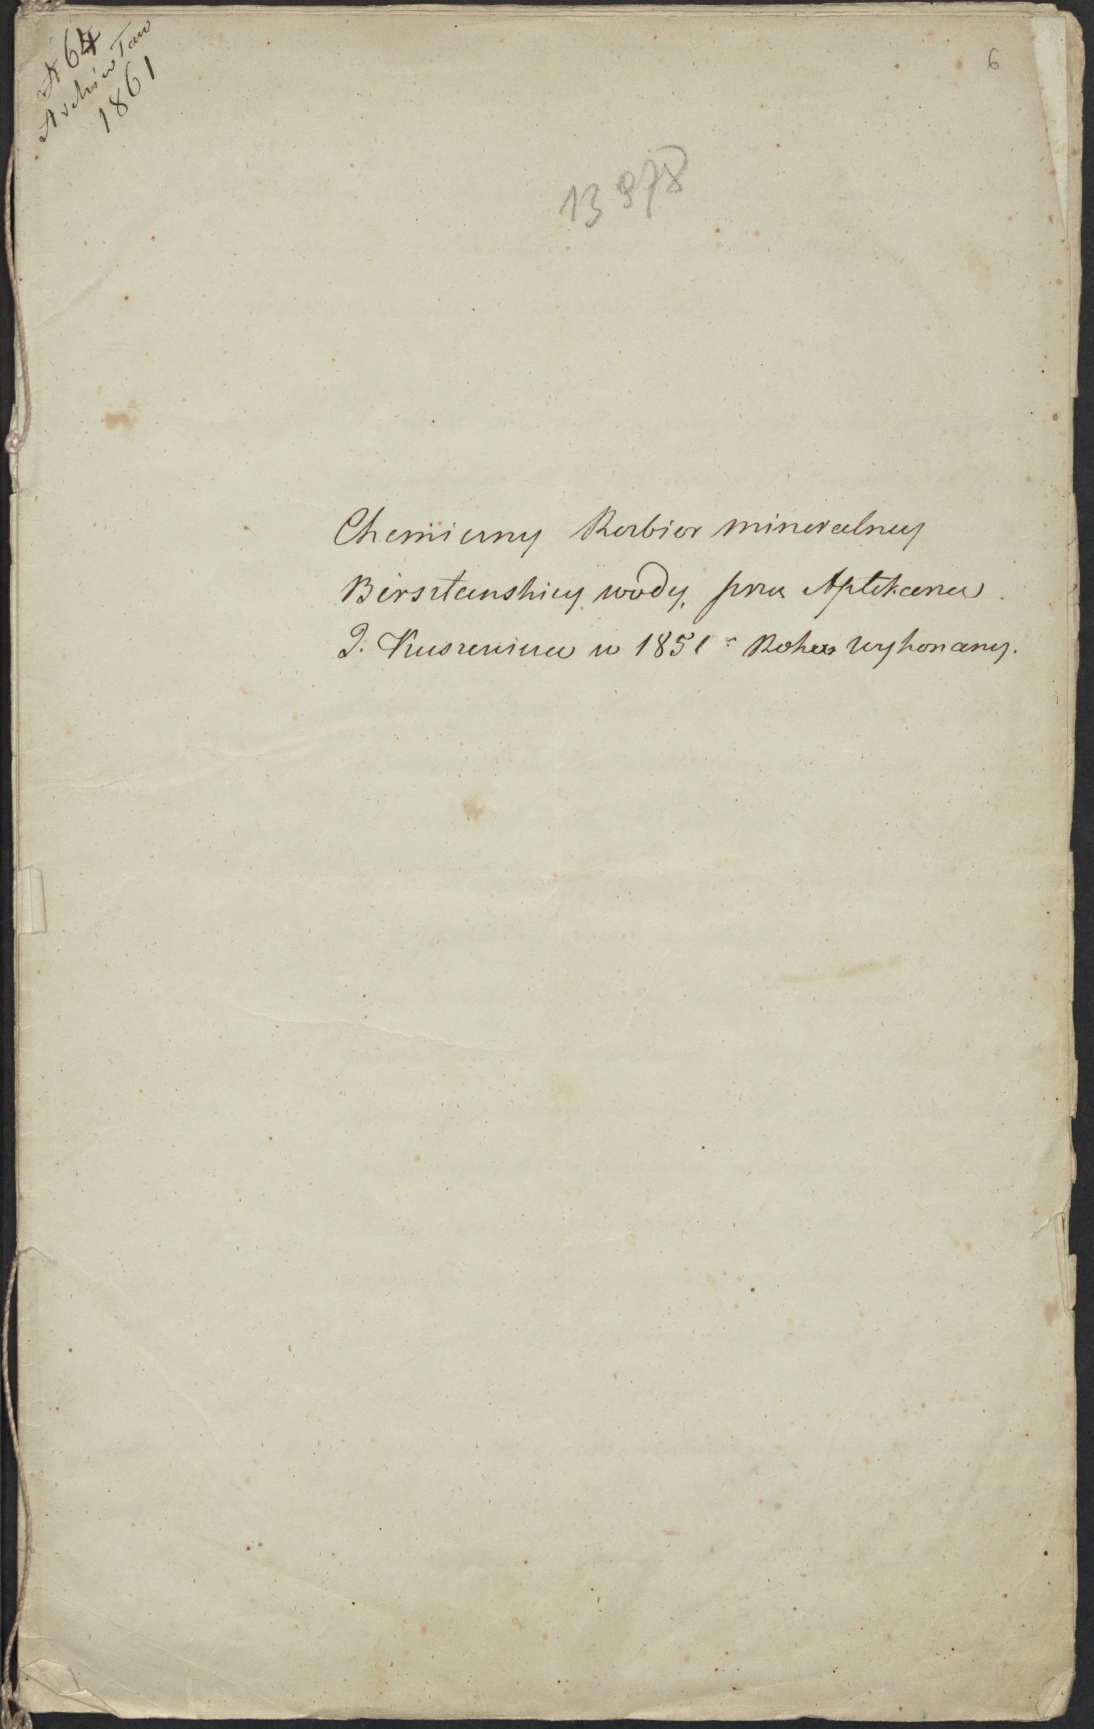 A 64
Archiw Tow
1861
6
13 978
Chemiczny Rozbior mineralney
Birsztanskiey wody, przez Aptekarza
J. w 1851 Roku wykonany.